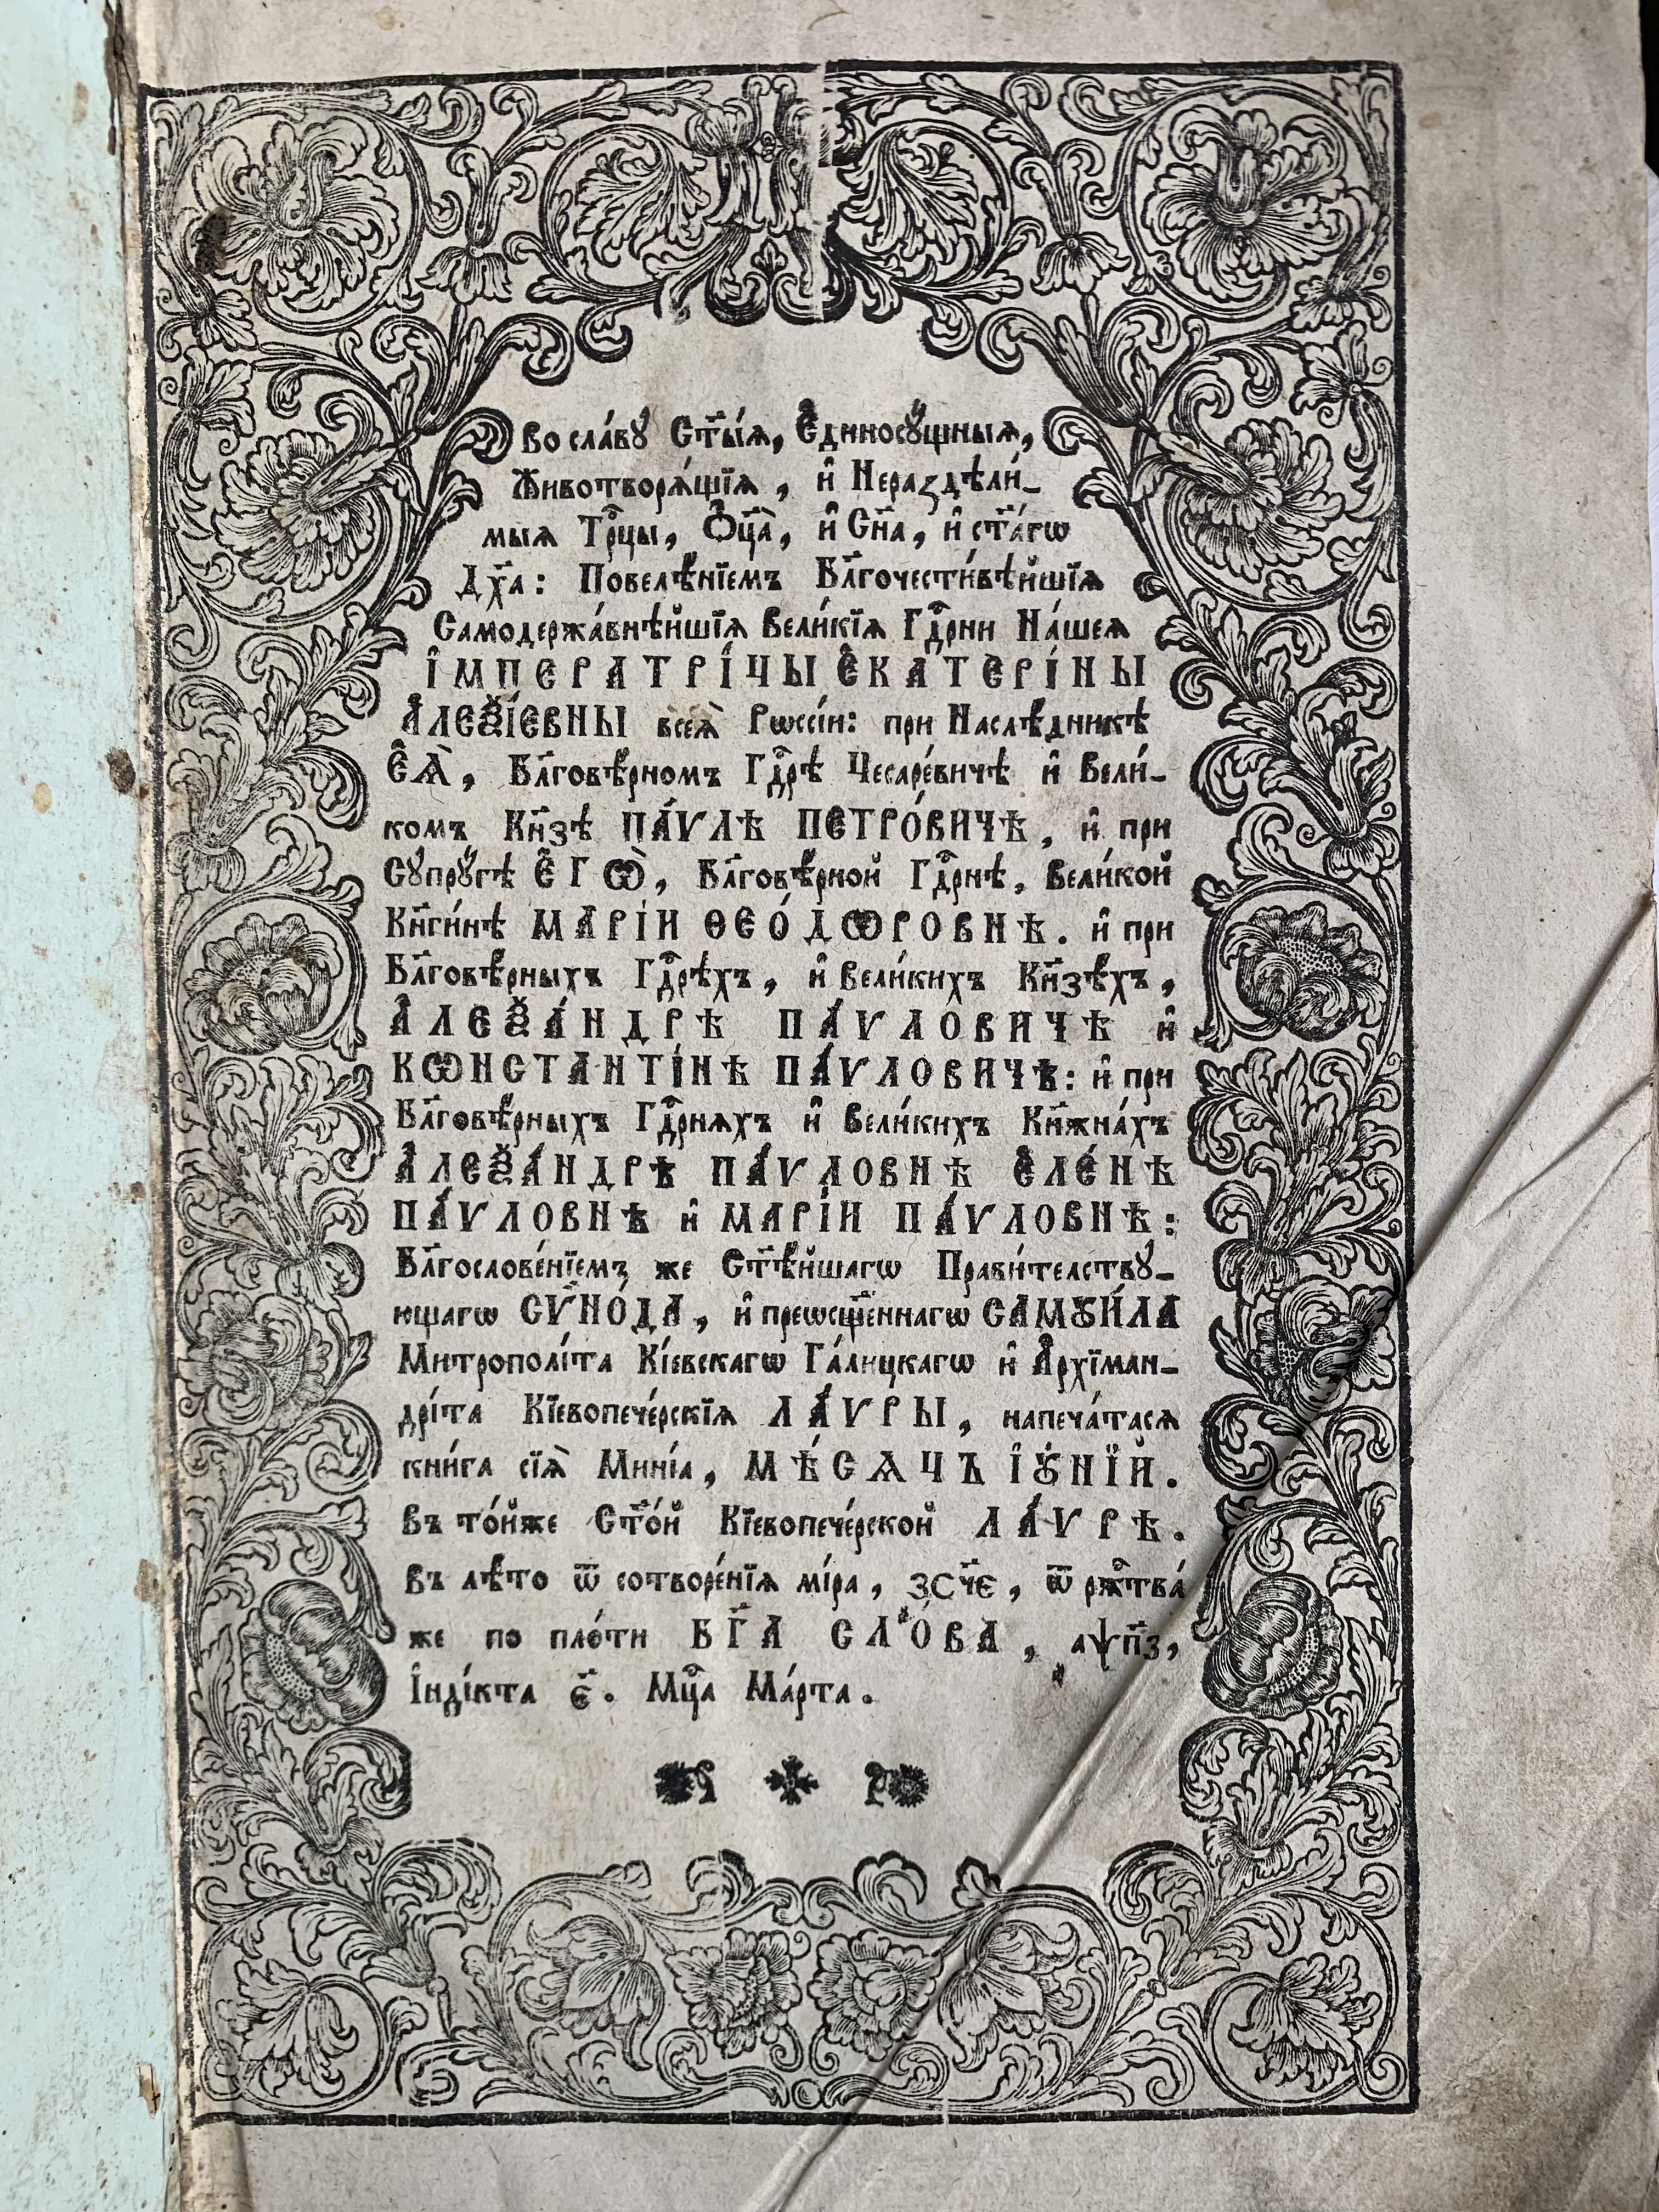 Во сла́вꙋ Ст҃ы́ѧ, Є҆диносꙋ́щныѧ,
Животворѧ́щїѧ, и҆ Нераздѣли́-
мыѧ Трⷪ҇цы, Ѻ҆ц҃а̀, и҆ Сн҃а, и҆ ст҃а́гѡ
Дх҃а: Повелѣ́нїемъ Бл҃гочести́вѣйшїѧ
Самодержа́внѣйшїѧ Вели́кїѧ Гдⷭ҇рни На́шеѧ
І҆МПЕРАТРІ́ЦЫ Є҆КАТЕРІ́НЫ
А҆ЛЕѮІ́ЕВНЫ всеѧ̀ Рѡссі́и: при Наслѣ́дникѣ
Є҆Ѧ̀, Бл҃говѣ́рномъ Гдⷭ҇рѣ Цесаре́вичѣ и҆ Вели́-
комъ Кн҃зѣ ПА́ѴЛѢ ПЕТРО́ВИЧѢ, и҆ при
Сꙋпрꙋ́гѣ Є҆ГѠ̀, Бл҃говѣ́рной Гдⷭ҇рнѣ, Вели́кой
Кн҃ги́нѣ МАРІ́И ѲЕО́ДѠРОВНѢ. и҆ при
Бл҃говѣ́рныхъ Гдⷭ҇рѣхъ, и҆ Вели́кихъ Кн҃зѣ́хъ,
А҆ЛЕѮА́НДРѢ ПА́ѴЛОВИЧѢ и҆
КѠНСТАНТІ́НѢ ПА́ѴЛОВИЧѢ: и҆ при
Бл҃говѣ́рныхъ Гдⷭ҇рнѧхъ и҆ Вели́кихъ Кн҃жна́хъ
А҆ЛЕѮА́НДРѢ ПА́ѴЛОВНѢ Є҆ЛЕ́НѢ
ПА́ѴЛОВНѢ и҆ МАРІ́И ПА́ѴЛОВНѢ:
Бл҃гослове́нїемъ же Ст҃ѣ́йшагѡ Прави́телствꙋ-
ющагѡ СѴНО́ДА, и҆ преѡсщ҃е́ннагѡ САМꙊИ́ЛА
Митрополі́та Кі́евскагѡ Га́лицкагѡ и҆ А҆рхїман-
дрі́та Кїевопече́рскїѧ ЛА́ѴРЫ, напеча́тасѧ
кни́га сїѧ̀ Мині́а, МѢ́СѦЦЪ І҆Ꙋ́НЇЙ.
Въ то́йже Ст҃о́й Кїевопече́рской ЛА́ѴРѢ.
Въ лѣ́то ѿ сотворе́нїѧ мі́ра, ЗСЧ҃Є, ѿ ржⷭ҇тва́
же по пло́ти БГ҃А СЛО́ВА, аѱп҃з,
І҆нді́кта є҃. Мцⷭ҇а Ма́рта.